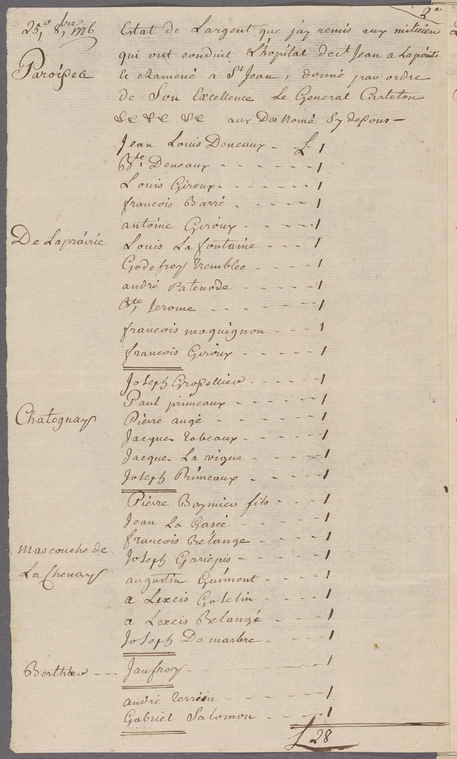 2e
25e 8bre 1776 Estat de Largent que jay remis aux milicien
qui ont conduit Lhopital de st Jean a Lapointe
Paroisse et Ramené a St Jean, donné par ordre
de Son Excellence Le General Carleton
&c &c &c &c aux Dos Nomé Sy depous —
Jean Louis Doneaux - £ 1
Bte Deneaux - - - 1
Louis Giroux - - - 1
francois Barré - - - 1
antoine Giroux - - - 1
De Laprairie Louis La fontaine - - - 1
Godefroy Tremblee - - - 1
andré Patenode - - - 1
Bte Jerome - - - 1
francois moquignon - - - 1
francois Giroux - - - 1
Joseph - - - 1
Paul primeaux - - - 1
Chatoguay Pierre augé - - - 1
Jacque Robeaux - - - 1
Jacque La vigne - - - 1
Joseph Primeaux - - - 1
Pierre fils - - - 1
Jean La Gasée - - - 1
francois Belange - - - 1
Mascouche de Joseph Gariepis - - - 1
La Chenay augustin Guimont - - - 1
a Lexcis Goselin - - - 1
a Lexcis Belangé - - - 1
Joseph Demarbre - - - 1
Berthier - - - Jaufroy - - - 1
andré Terrien - - - 1
Gabriel Salomon - - - 1
£ 28